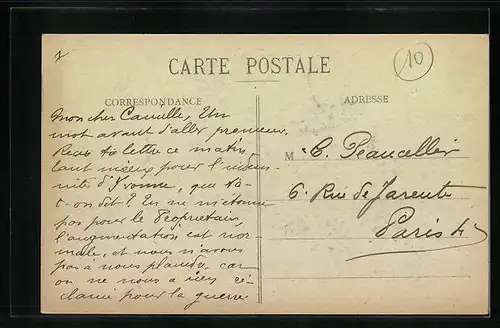 10
CARTE POSTALE
CORRESPONDANCE
Mon cher Camille, Un
mot avant d'aller promener.
Reçu ta lettre ce matin,
tant mieux pour l'indem-
nité d'Yvonne, que t'a-
t-on dit? Tu ne m'étonne
pas pour le Propriétaire,
l'augmentation est nor-
male, et nous n'avons
pas à nous plaindre car
on ne nous a rien ré-
clamé pour la guerre
ADRESSE
M C. Peaucellier
6 Rue de Jarente
Paris 4